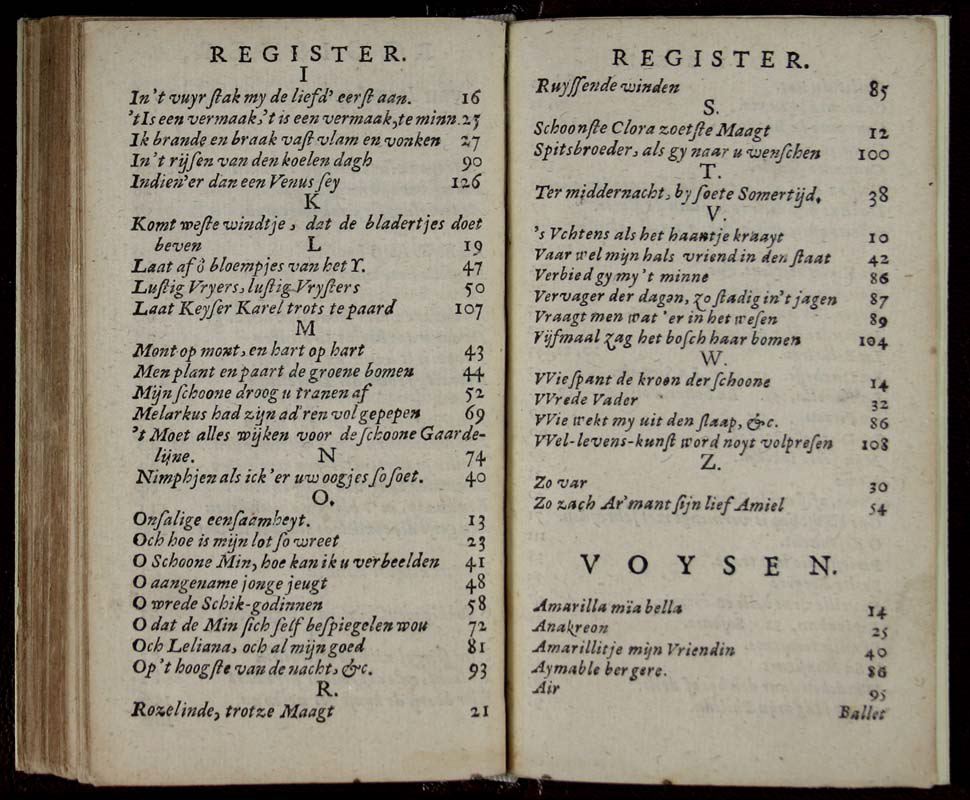 REGISTER.
I
In't vuyr ſtak my de liefd' eerſt aan. 16
'tIs een vermaak,'t is een vermaak,te minn.25
Ik brande en braak vaſt vlam en vonken 27
In't rijſen van den koelen dagh 90
Indien'er dan een Venus ſey 126
K
Komt weſte windtje, dat de bladertjes doet
beven L 19
Laat af ô bloempjes van het Y. 47
Luſtig Vryers, luſtig Vryſters 50
Laat Keyſer Karel trots te paard 107
M
Mont op mont, en hart op hart 43
Men plant en paart de groene bomen 44
Mijn ſchoone droog u tranen af 52
Melarkus had zijn ad'ren vol gepepen 69
't Moet alles wijken voor de ſchoone Gaarde-
lijne. N 74
Nimphjen als ick'er uw oogjes ſo ſoet. 40
O.
Onſalige eenſaamheyt. 13
Och hoe is mijn lot ſo wreet 23
O Schoone Min, hoe kan ik u verbeelden 41
O aangename jonge jeugt 48
O wrede Schik-godinnen 58
O dat de Min ſich ſelf beſpiegelen wou 72
Och Leliana, och al mijn goed 81
Op't hoogſte van de nacht, &c. 93
R.
Rozelinde, trotze Maagt 21
REGISTER.
Ruyſſende winden 85
S.
Schoonſte Clora zoetſte Maagt 12
Spitsbroeder, als gy naar u wenſchen 100
T.
Ter middernacht, by ſoete Somertijd. 38
V.
's Vchtens als het haantje kraayt 10
Vaar wel mijn hals vriend in den ſtaat 42
Verbied gy my't minne 86
Vervager der dagen, zo ſtadig in't jagen 87
Vraagt men wat 'er in het weſen 89
Vijfmaal zag het boſch haar bomen 104
W.
VVie ſpant de kroon der ſchoone 14
VVrede Vader 32
VVie wekt my uit den ſlaap, &c. 86
VVel-levens-kunſt word noyt volpreſen 108
Z.
Zo var 30
Zo zach Ar'mant ſijn lief Amiel 54
VOYSEN.
Amarilla mïa bella 14
Anakreon 25
Amarillitje mijn Vriendin 40
Aymable bergere. 86
Air 95
Ballet